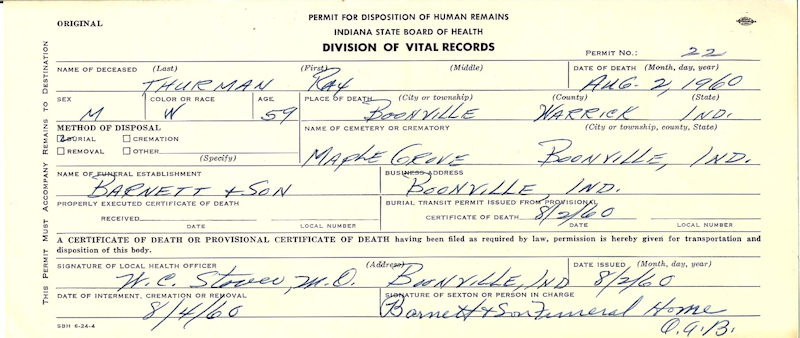 ORIGINAL
PERMIT FOR DISPOSITION OF HUMAN REMAINS
INDIANA STATE BOARD OF HEALTH
DIVISION OF VITAL RECORDS
PERMIT NO.: 22
THIS PERMIT MUST ACCOMPANY REMAINS TO DESTINATION
NAME OF DECEASED (Last) (First) (Middle) DATE OF DEATH (Month, day, year)
THURMAN RAY AUG. 2, 1960
SEX COLOR OR RACE AGE PLACE OF DEATH (City or township) (County) (State)
M W 59 BOONVILLE WARRICK IND.
METHOD OF DISPOSAL NAME OF CEMETERY OR CREMATORY (City or township, county, State)
BURIAL CREMATION
REMOVAL OTHER
(Specify) MAPLE GROVE BOONVILLE, IND.
NAME OF FUNERAL ESTABLISHMENT BUSINESS ADDRESS
BARNETT & SON BOONVILLE, IND.
PROPERLY EXECUTED CERTIFICATE OF DEATH BURIAL TRANSIT PERMIT ISSUED FROM PROVISIONAL
RECEIVED CERTIFICATE OF DEATH 8/2/60
DATE LOCAL NUMBER DATE LOCAL NUMBER
A CERTIFICATE OF DEATH OR PROVISIONAL CERTIFICATE OF DEATH having been filed as required by law, permission is hereby given for transportation and
disposition of this body.
SIGNATURE OF LOCAL HEALTH OFFICER (Address) DATE ISSUED (Month, day, year)
W. C. Stover, M.D. BOONVILLE, IND 8/2/60
DATE OF INTERMENT, CREMATION OR REMOVAL SIGNATURE OF SEXTON OR PERSON IN CHARGE
8/4/60 Barnett & Son Funeral Home
SBH 6-24-4 O.G.B.